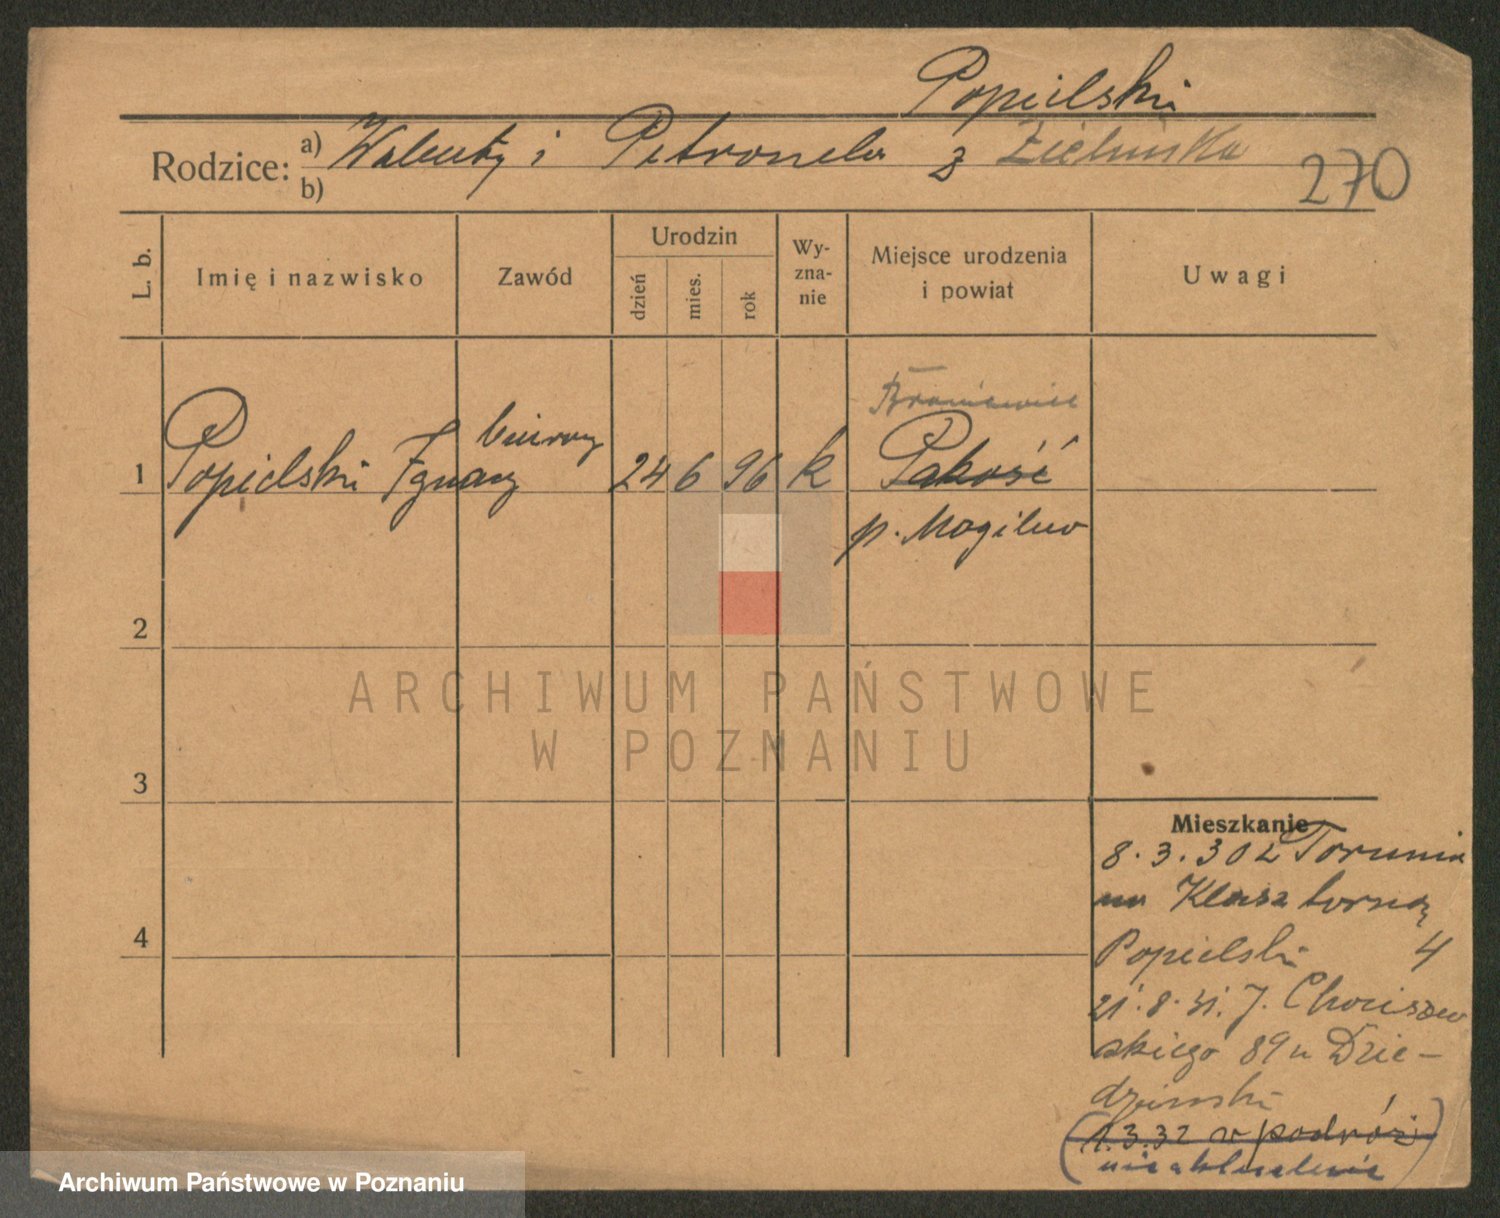 Popielski
Rodzice: a) Walenty i Petronela z Zielińska
b)
270
L. b.
Imię i nazwisko
Zawód
Urodzin
dzień
mies.
rok
Wy-
zna-
nie
Miejsce urodzenia
i powiat
Uwagi
Broniewice
1 Popielski Ignacy biurowy 24 6 96 k Pakość
p. Mogilno
2
ARCHIWUM PAŃSTWOWE
W POZNANIU
3
4
Mieszkanie
8.3.30 z Torunia
na
Popielski 4
21.8.31. J. Chociszew
skiego 89 u Dzie-
dzinski
1.3.32 w podróż
Archiwum Państwowe w Poznaniu